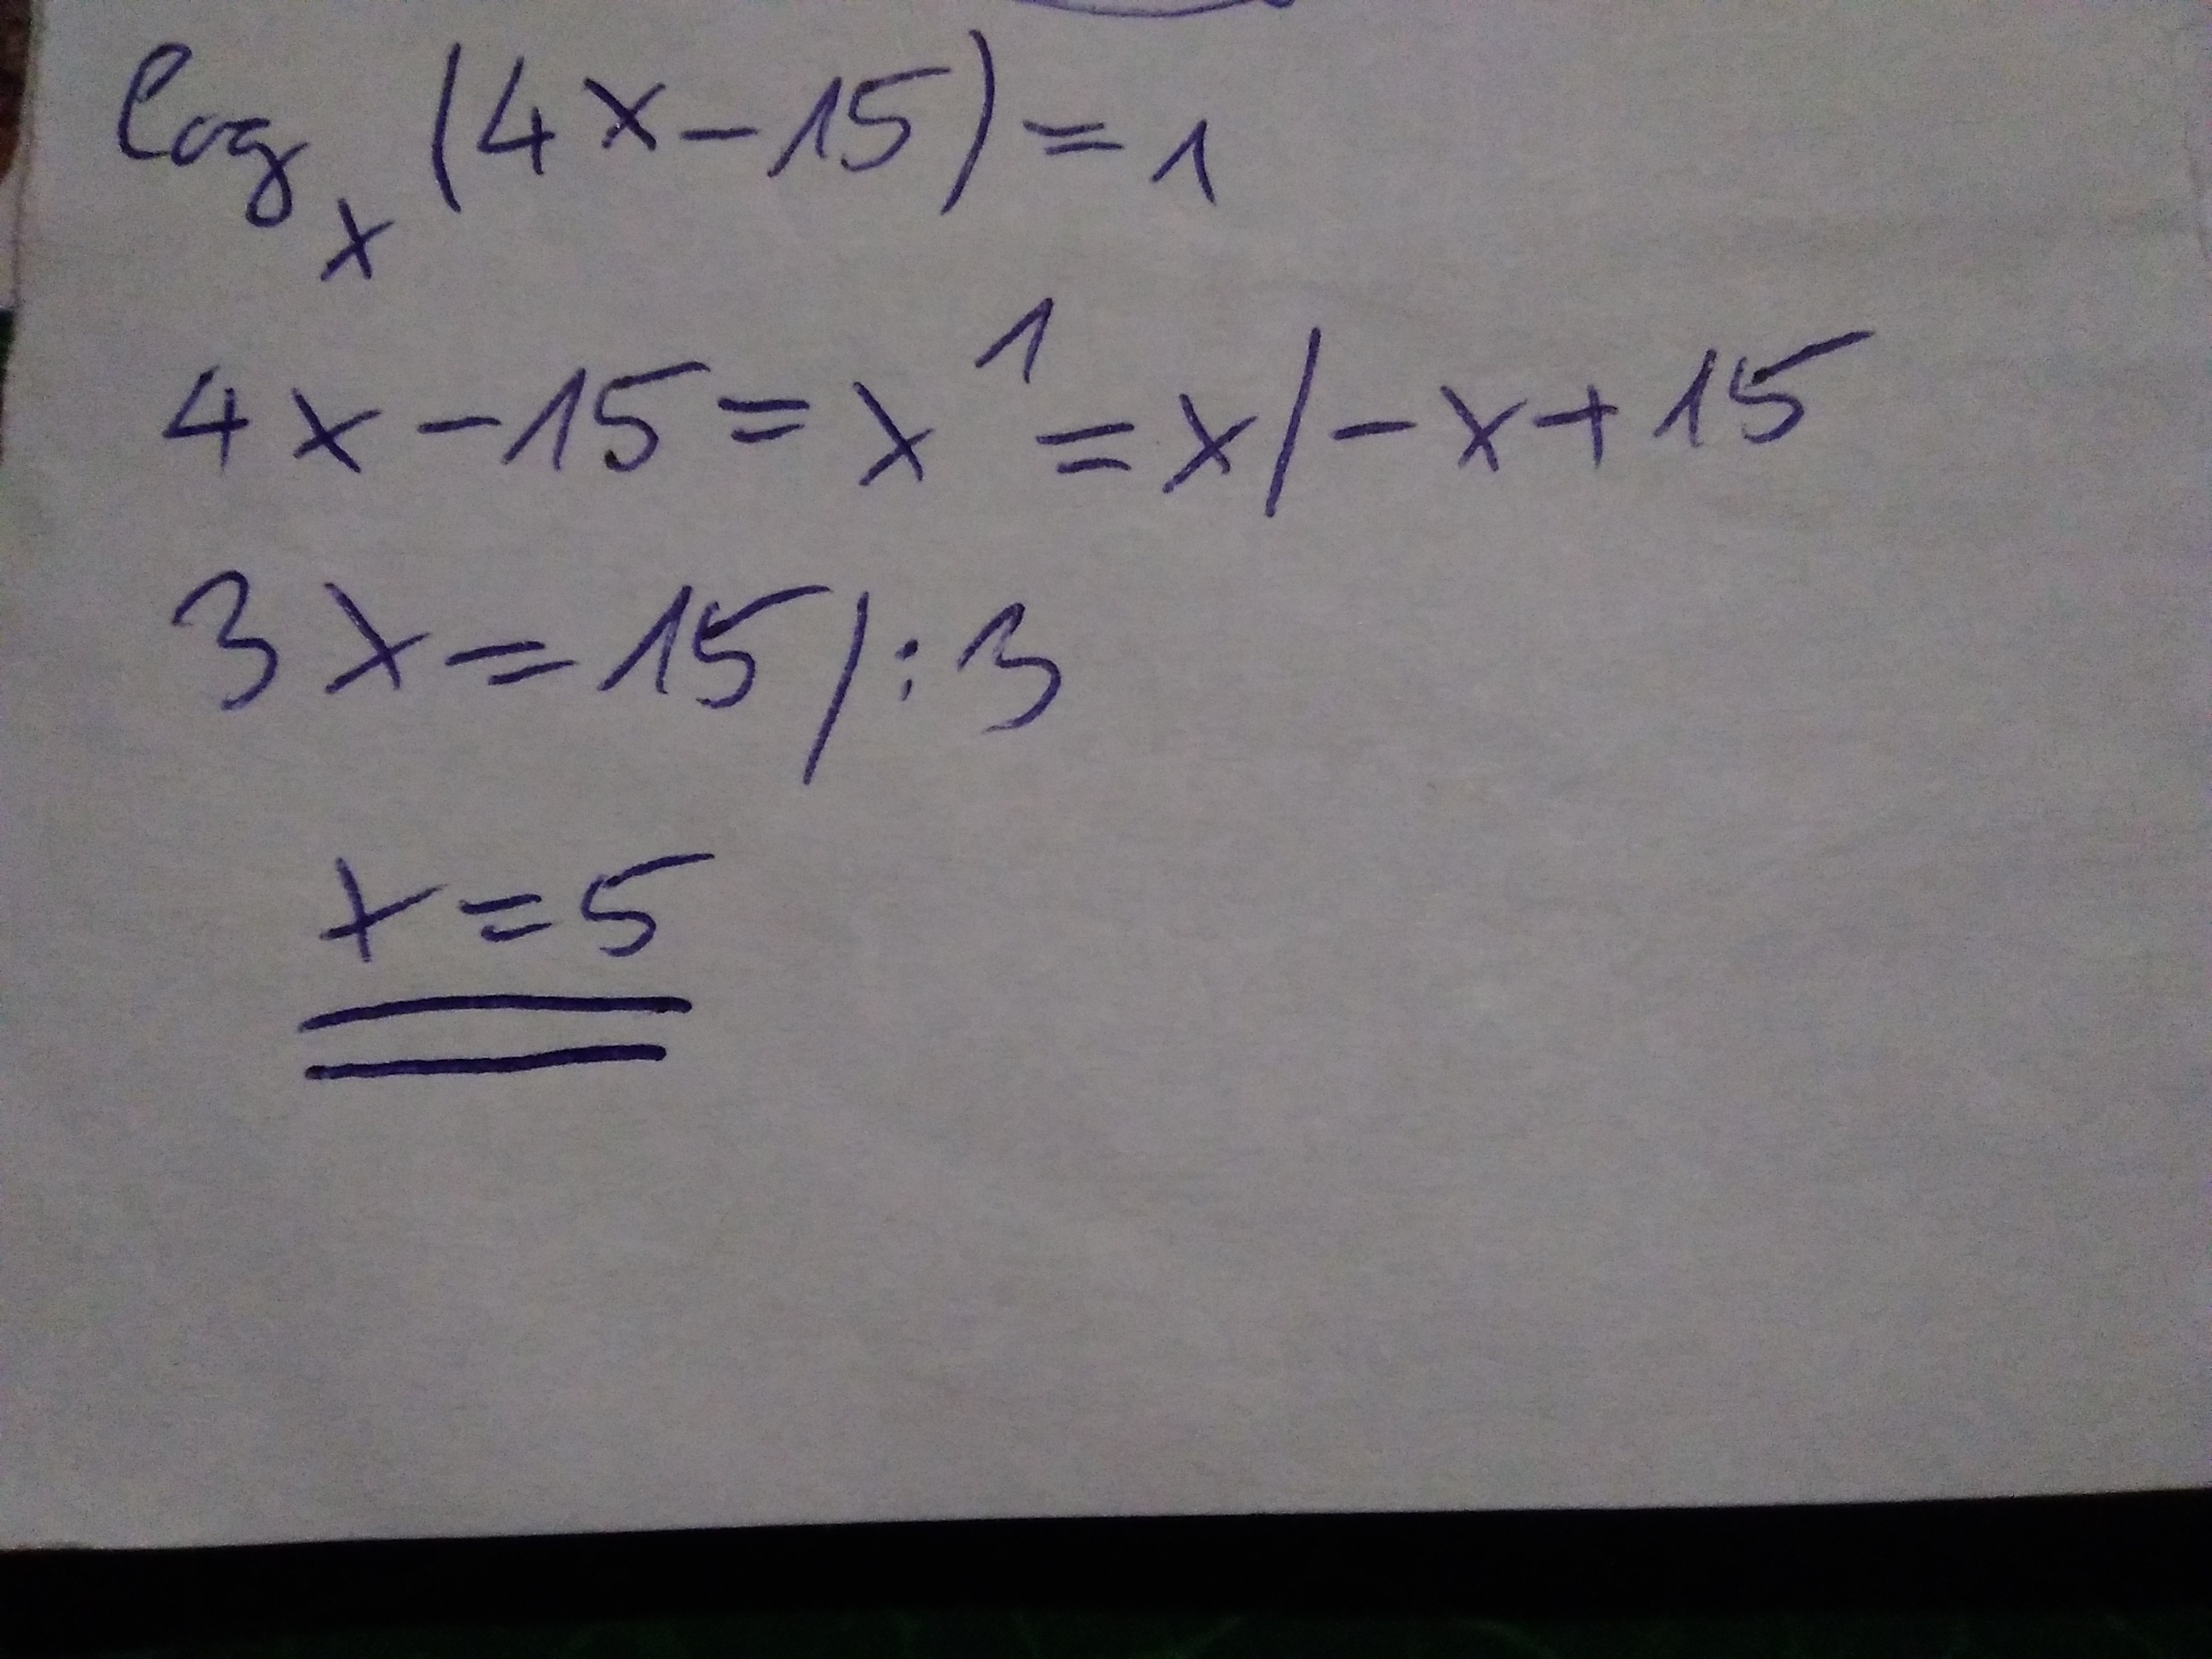 log_x (4x-15)=1
4x-15=x^1=x/-x+15
3x=15/:3
x=5